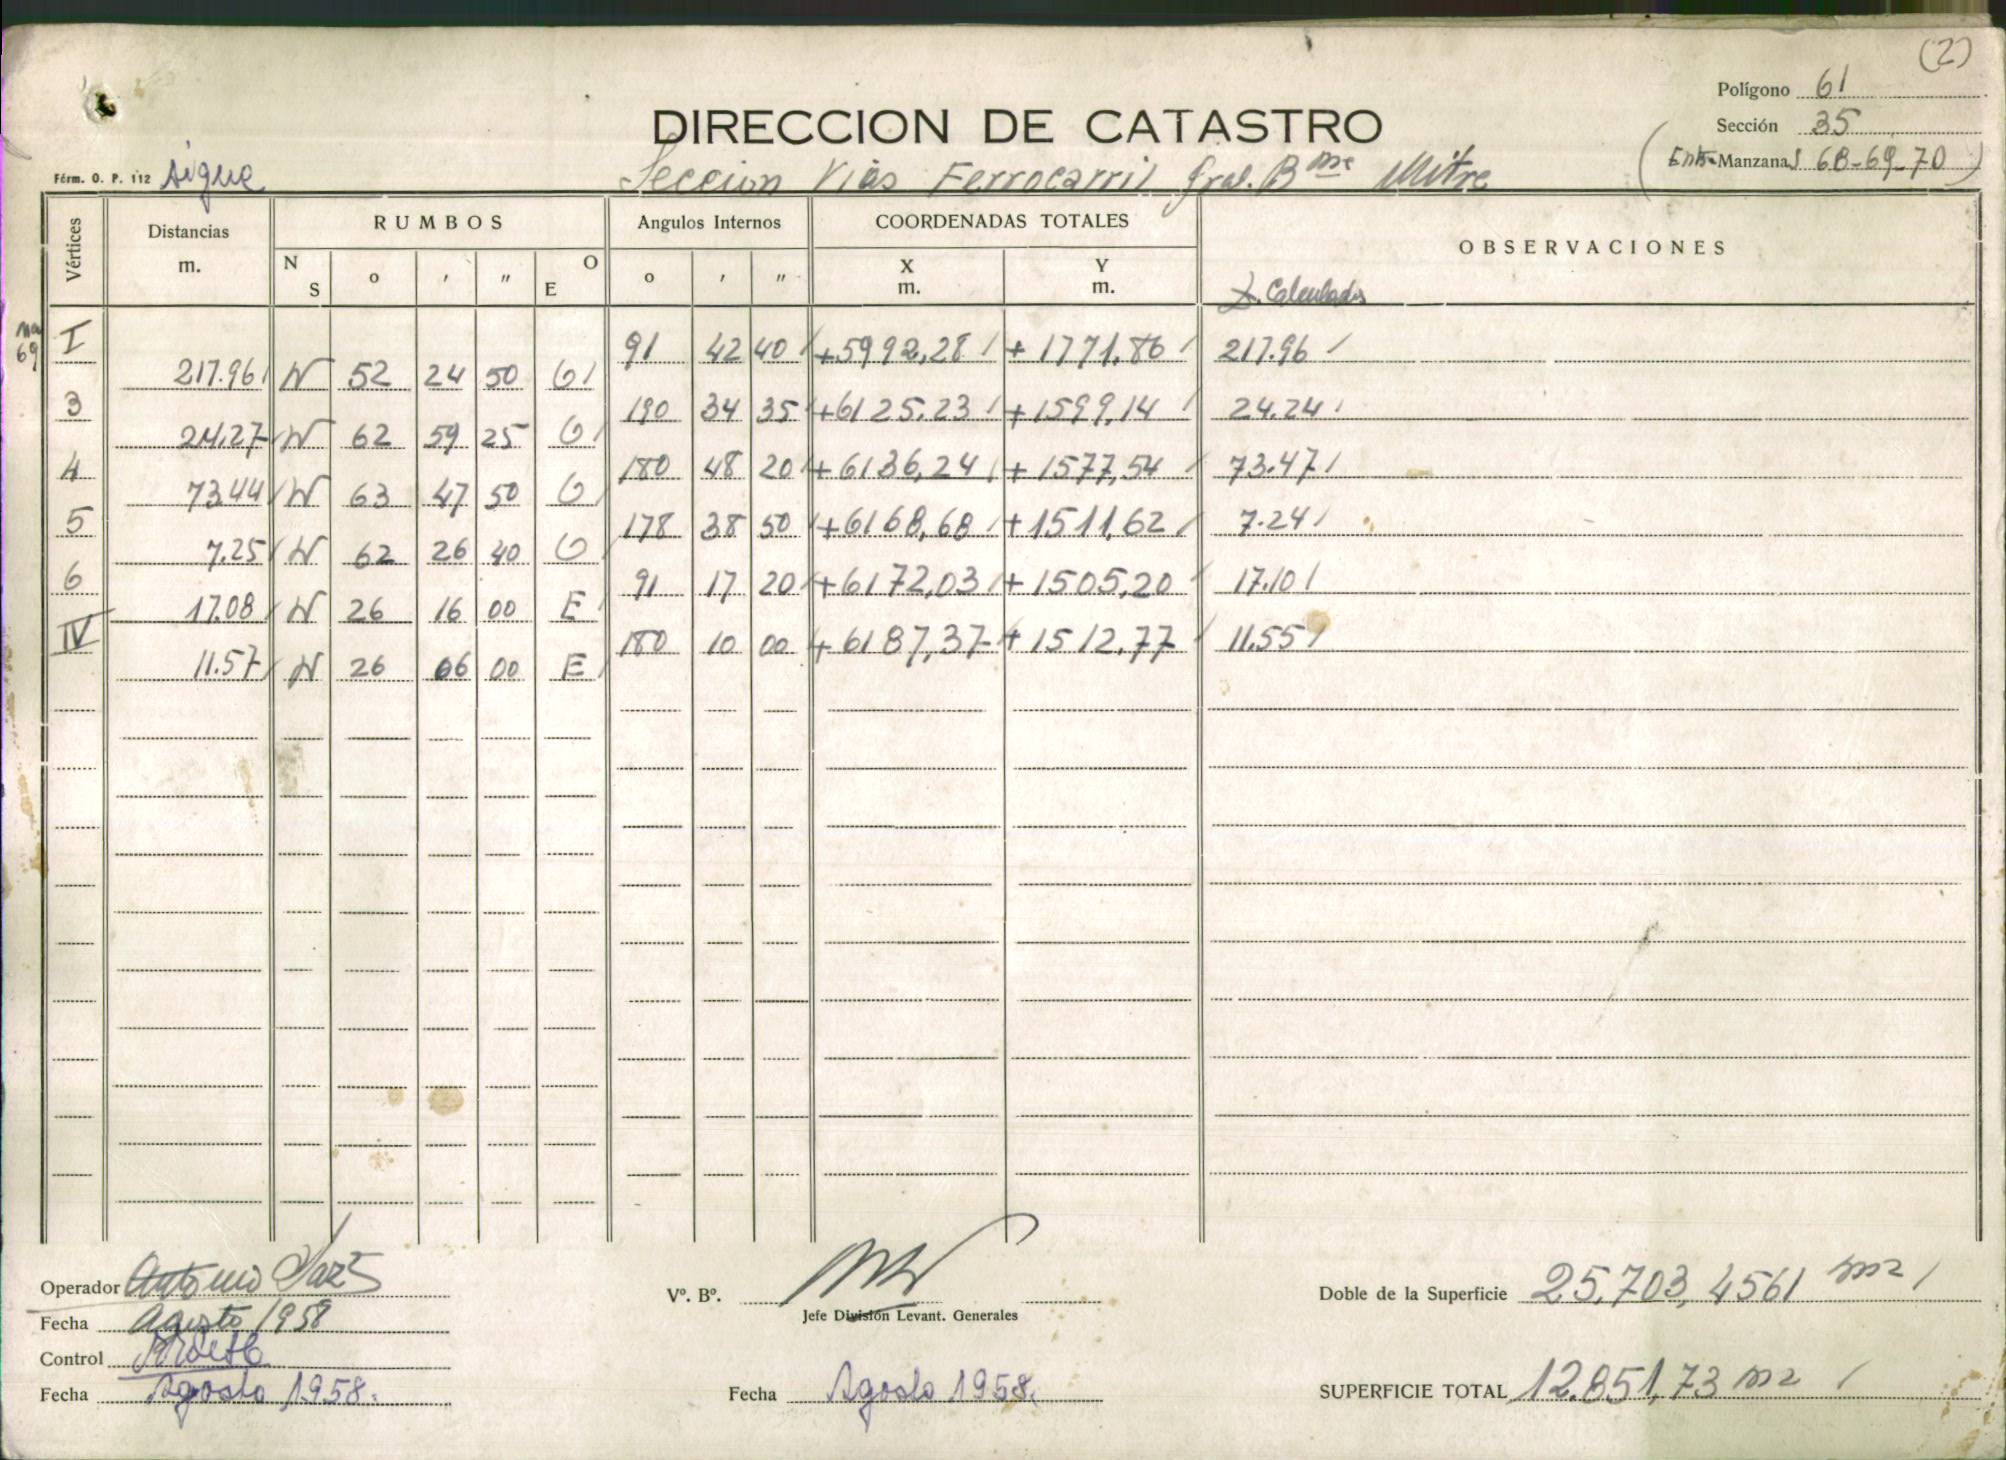 (2)
Polígono 61
DIRECCION DE CATASTRO
Sección 35
Entre Manzanas 68-69-70
Fórm. O. P. 112 Sigue
Seccion Vias Ferrocarril Gral. Bme Mitre
Vértices Distancias m. RUMBOS Angulos Internos COORDENADAS TOTALES OBSERVACIONES
N S o ' " O E o ' " X m. Y m.
D. Calculadas
Mª 69
I 91 42 40 +5992,28 +1771,86 217.96
217.96 N 52 24 50 O
3 190 34 35 +6125.23 +1599,14 24.24
24,27 N 62 59 25 O
4 180 48 20 +6136,24 +1577,54 73.47
73.44 N 63 47 50 O
5 178 38 50 +6168,68 +1511,62 7.24
7.25 N 62 26 40 O
6 91 17 20 +6172,03 +1505,20 17.10
17.08 N 26 16 00 E
IV 180 10 00 +6187,37 +1512,77 11.55
11.57 N 26 06 00 E
Operador Antonio
Vº. Bº.
Jefe División Levant. Generales
Doble de la Superficie 25.703,4561 m2
Fecha Agosto 1958
Control
Fecha Agosto 1958.
Fecha Agosto 1958.
SUPERFICIE TOTAL 12.851,73 m2